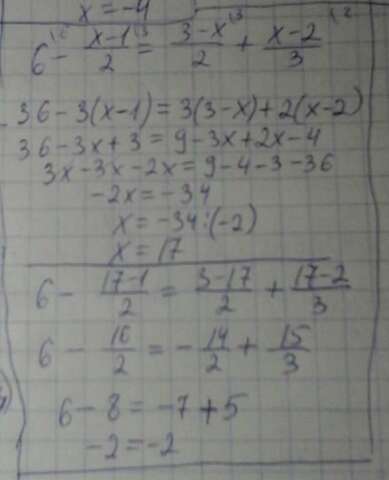 x = -4
6 - x-1/2 = 3-x/2 + x-2/3
36-3(x-1)=3(3-x)+2(x-2)
36-3x+3=9-3x+2x-4
3x-3x-2x=9-4-3-36
-2x=-34
x=-34:(-2)
x=17
6 - 17-1/2 = 3-17/2 + 17-2/3
6 - 16/2 = - 14/2 + 15/3
6-8=-7+5
-2=-2